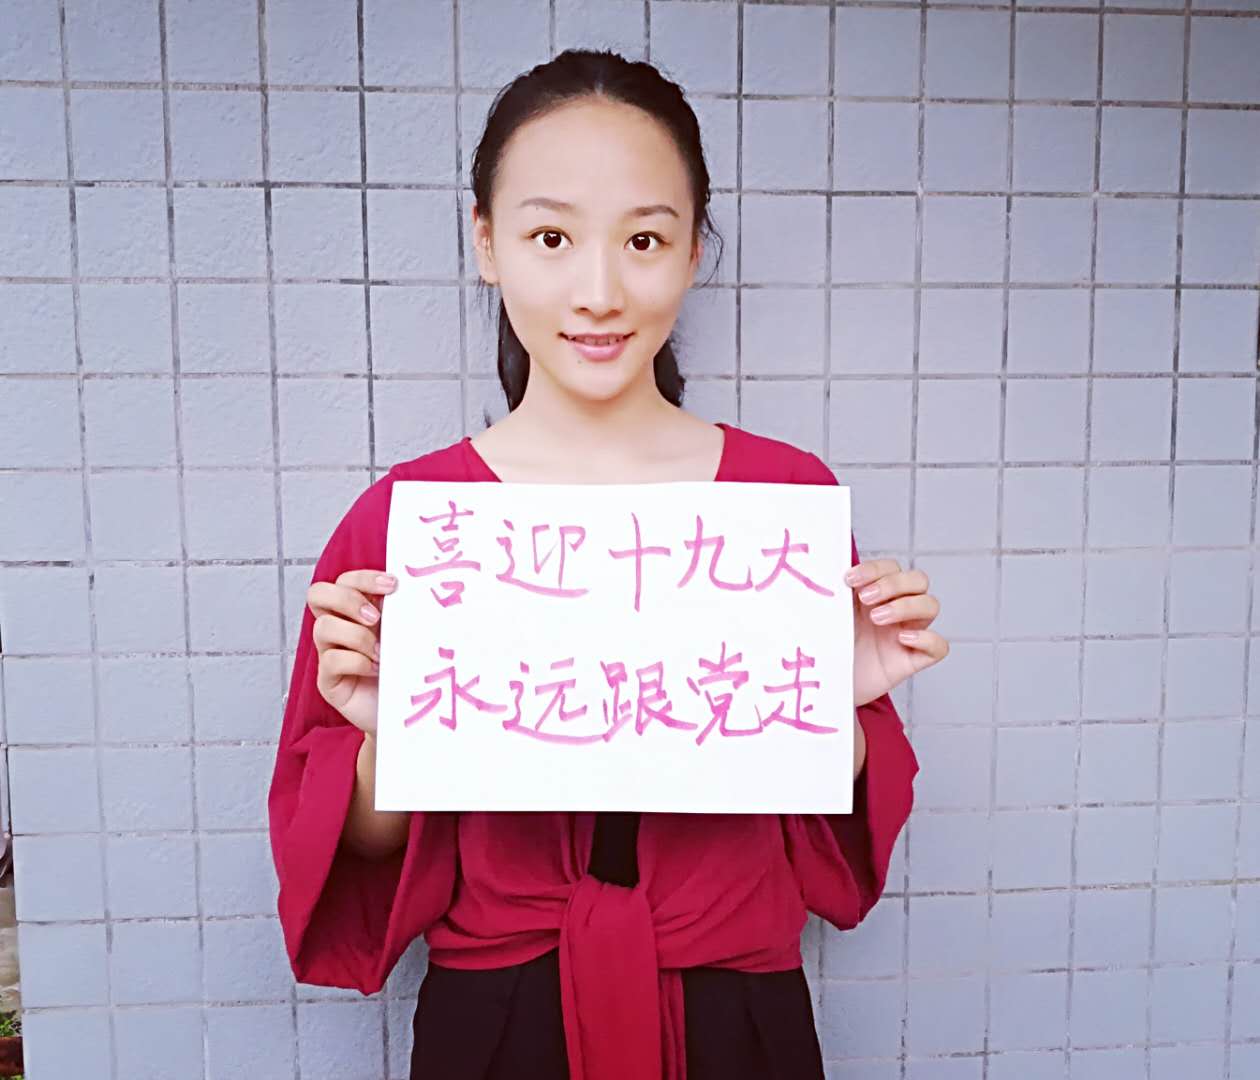 喜迎十九大
永远跟党走